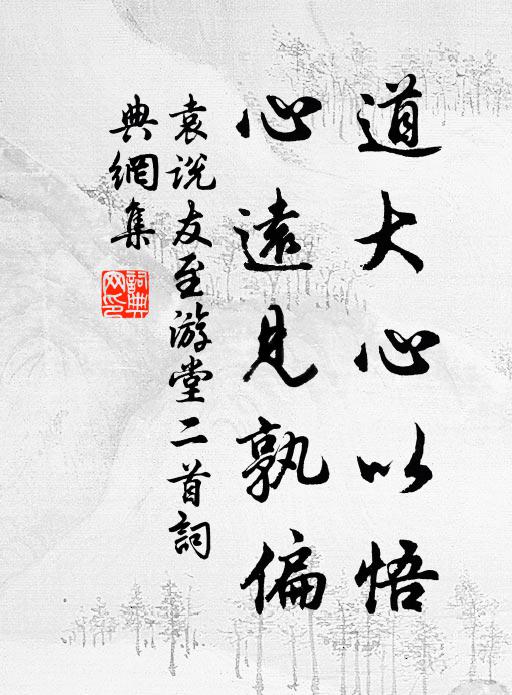 道大心以悟
心遠見孰偏
袁說友至游堂二首詞
典網集
詞典網印